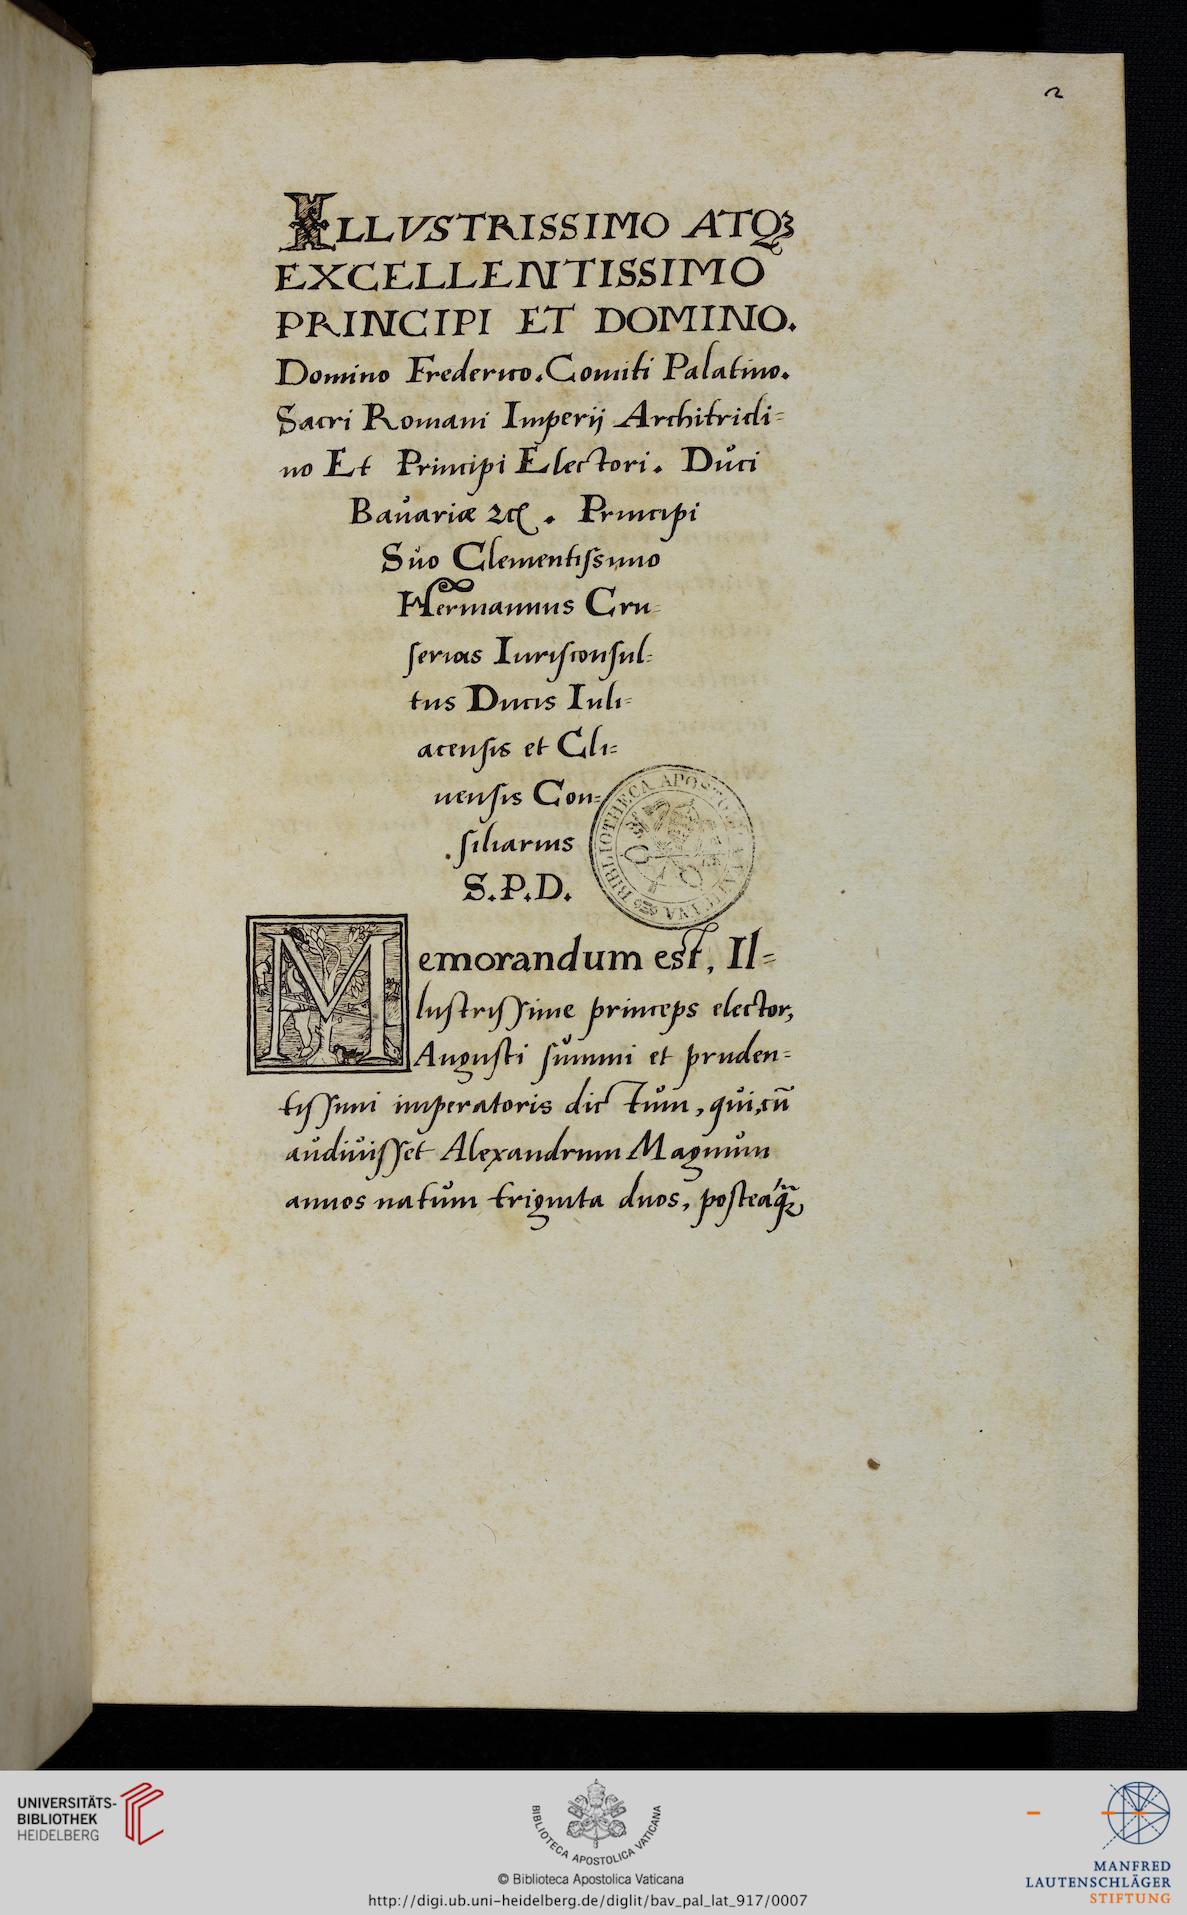 2
ILLVSTRISSIMO ATQꝫ
EXCELLENTISSIMO
PRINCIPI ET DOMINO.
Domino Frederico. Comiti Palatino.
Sacri Romani Imperij Architricli=
no Et Principi Electori. Důci
Baůariæ ꝛcꝭ. Principi
Sůo Clementiſsimo
Hermannus Cru=
ſerius Iuriſconſul=
tus Ducis Iuli=
acenſis et Cli=
uenſis Con=
ſiliarius
S.P.D.
BIBLIOTHECA APOSTOLICA VATICANA
Memorandum est, Il=
luſtriſſime princeps elector,
Auguſti ſůmmi et pruden=
tiſſimi imperatoris dictům, qůi, cū
aůdiůiſſet Alexandrum Magnům
annos natům triginta duos, poſteaq̃ꝫ
UNIVERSITÄTS-
BIBLIOTHEK
HEIDELBERG
BIBLIOTECA APOSTOLICA VATICANA
© Biblioteca Apostolica Vaticana
http://digi.ub.uni-heidelberg.de/diglit/bav_pal_lat_917/0007
MANFRED
LAUTENSCHLÄGER
STIFTUNG